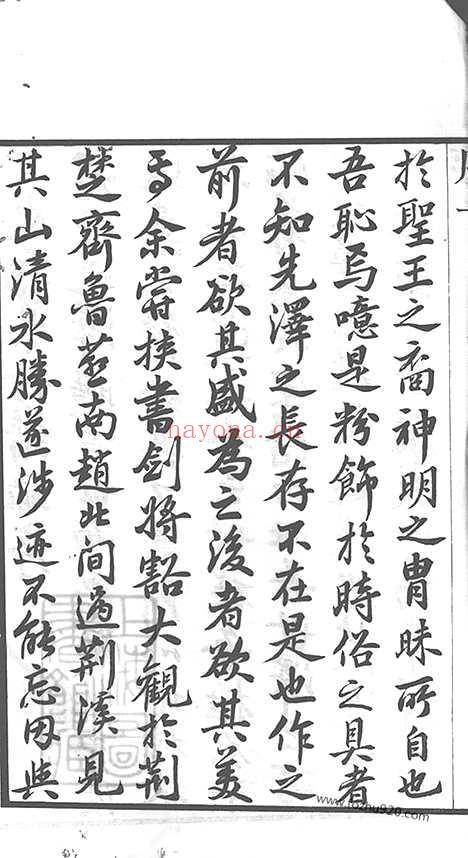 於聖王之裔神明之冑昧所自也
吾恥焉噫是粉飾於時俗之具者
不知先澤之長存不在是也作之
前者欲其盛為之後者欲其美
焉余嘗挾書劍將豁大觀於荆
楚齊魯燕南趙北間過荆溪見
其山清水勝遂涉迹不能忘因與
nayona.cn
www.fozhu920.com